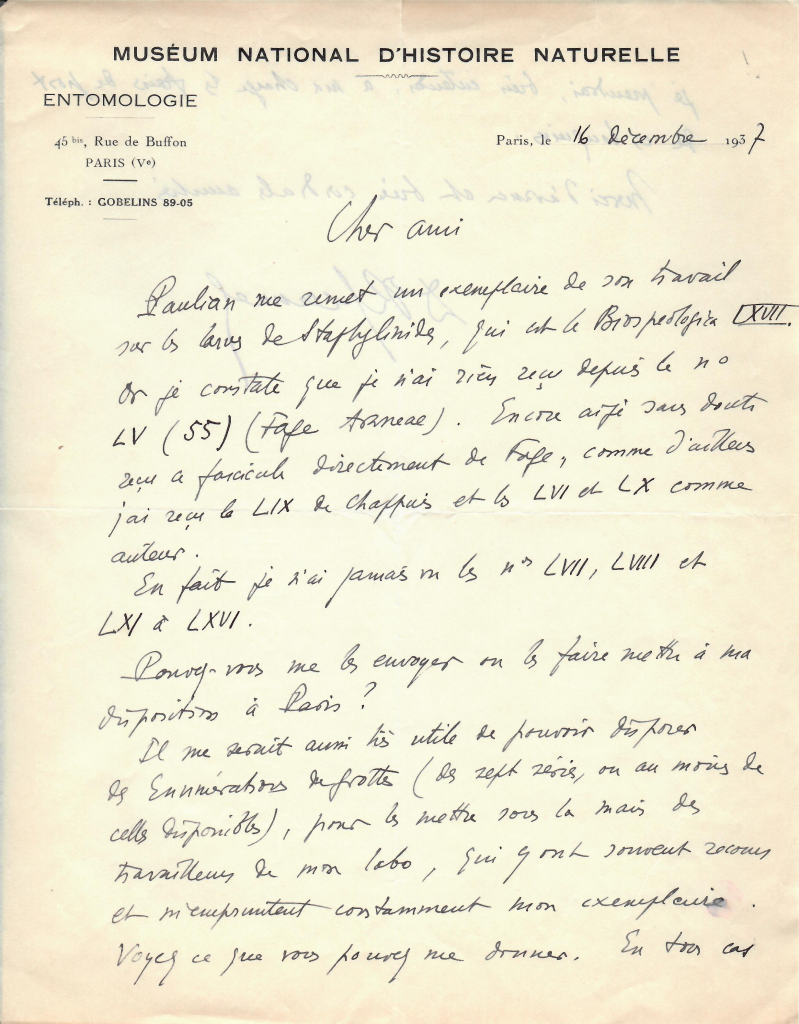 MUSÉUM NATIONAL D'HISTOIRE NATURELLE
ENTOMOLOGIE
45 bis, Rue de Buffon
PARIS (Ve)
Téléph. : GOBELINS 89-05
Paris, le 16 Décembre 1937
Cher ami
Paulian me remet un exemplaire de son travail
sur les larves de Staphylinides, qui est le Biospeologica LXVII.
Or je constate que je n'ai rien reçu depuis le no
LV (55) (Fage Araneae). Encore ai-je sans doute
reçu ce fascicule directement de Fage, comme d'ailleurs
j'ai reçu le LIX de Chappuis et les LVI et LX comme
auteur.
En fait je n'ai jamais vu les nos LVII, LVIII et
LXI à LXVI.
Pouvez-vous me les envoyer ou les faire mettre à ma
disposition à Paris ?
Il me serait aussi très utile de pouvoir disposer
des Enumérations de grottes (des sept séries, ou au moins de
celles disponibles), pour les mettre sous la main des
travailleurs de mon labo, qui y ont souvent recours
et m'empruntent constamment mon exemplaire.
Voyez ce que vous pouvez me donner. En tous cas